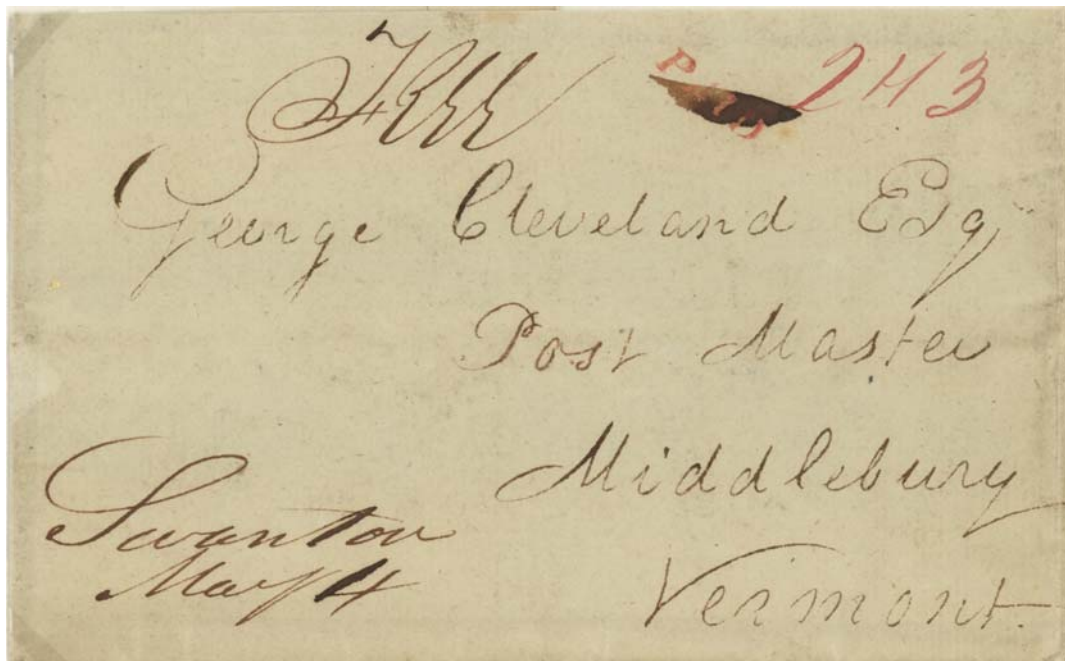 Free
PAID 243
George Cleveland Esq
Post Master
Middlebury
Vermont.
Swanton
May 14